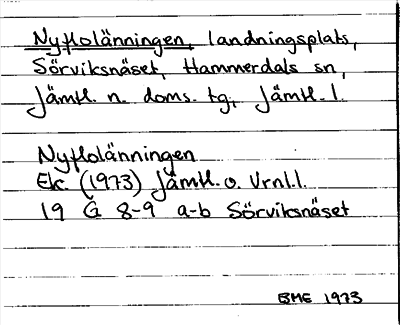 Nyflolänningen, landningsplats,
Sörviksnäset, Hammerdals sn,
Jämtl. n. doms. tg, Jämtl. l.
Nyflolänningen
Ek. (1973) Jämtl. o. Vrnl. l.
19 G 8-9 a-b Sörviksnäset
BME 1973